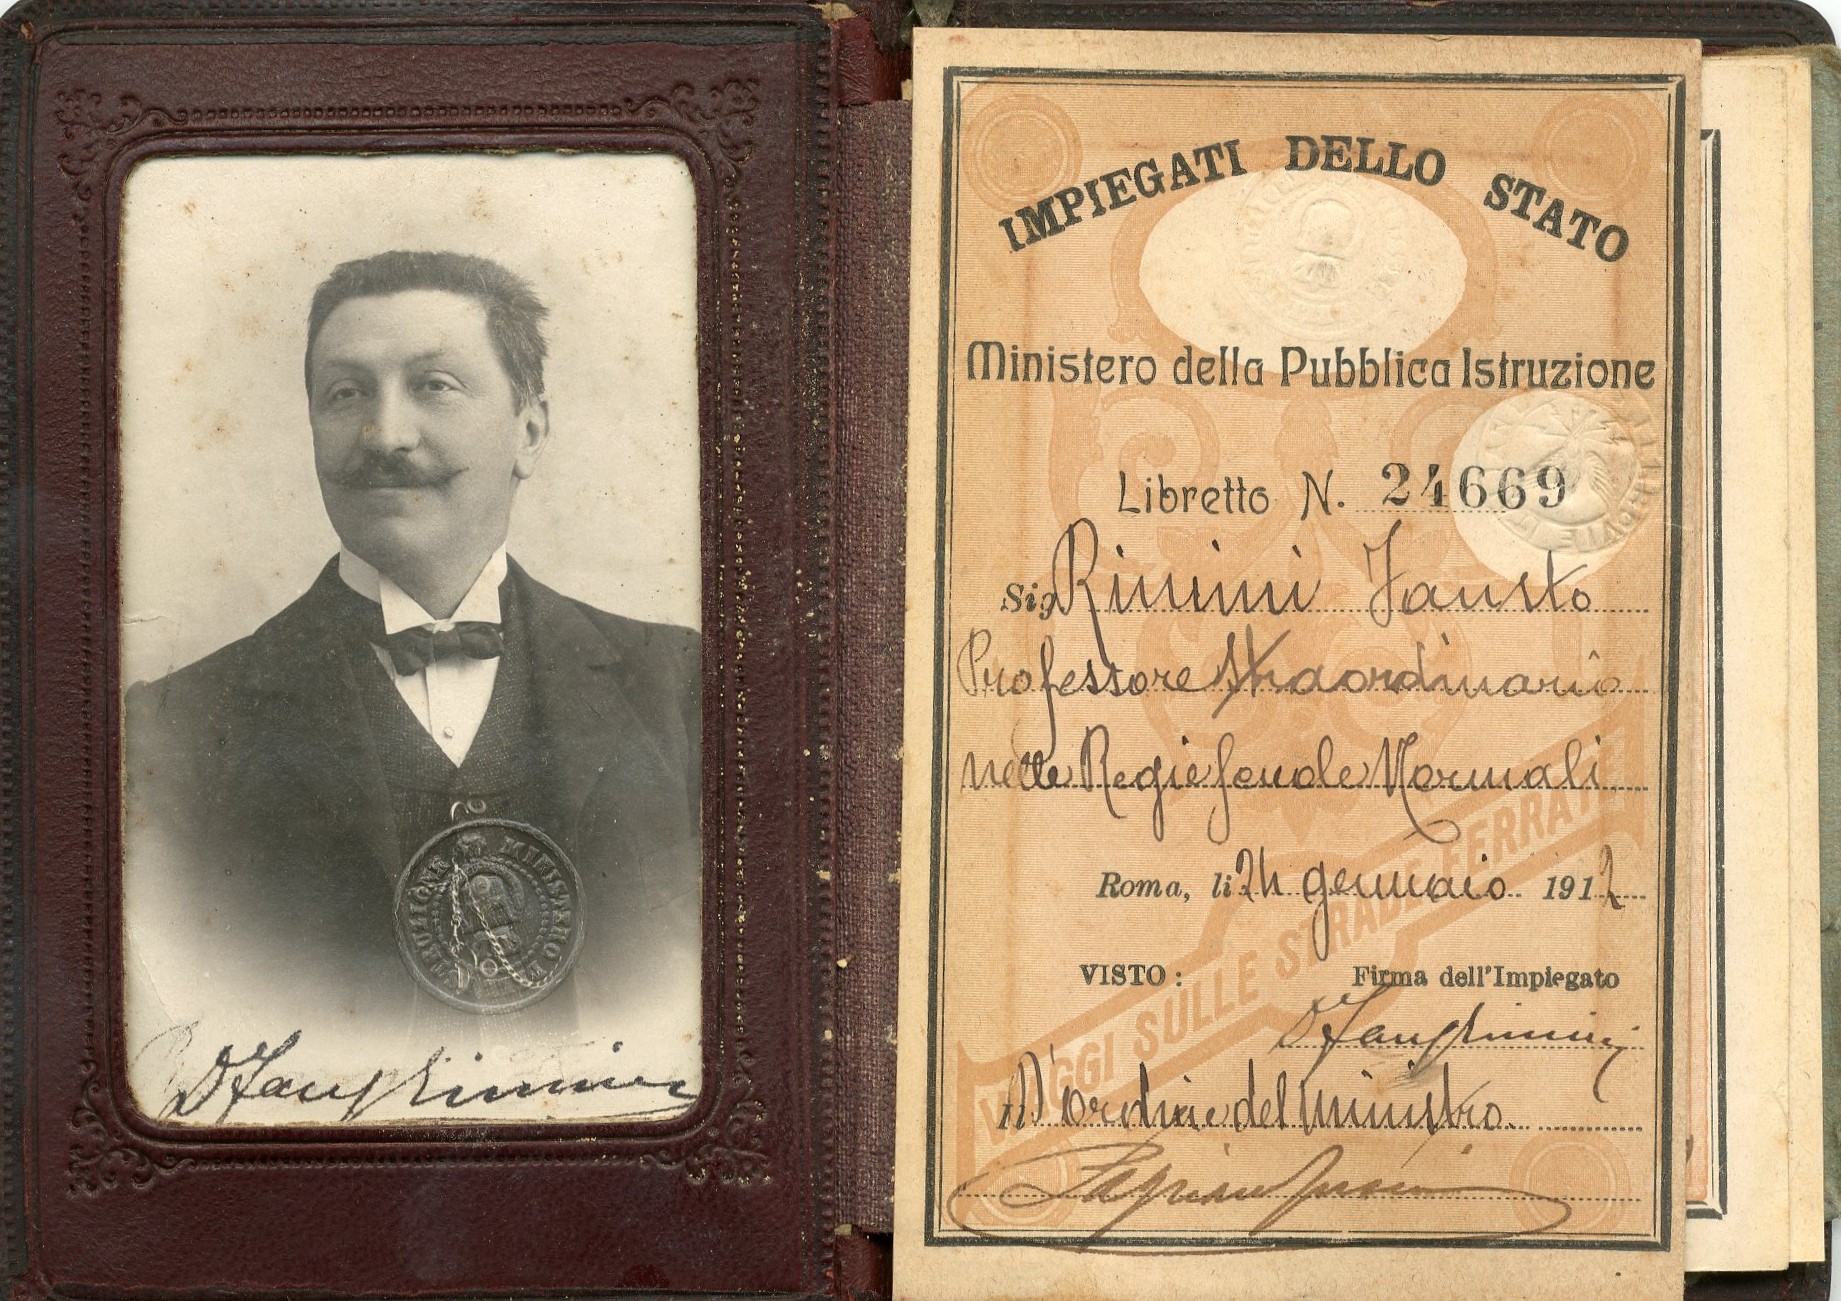 MINISTERO
IMPIEGATI DELLO STATO
Ministero della Pubblica Istruzione
Libretto N. 24669
Sig Rimini Fausto
Professore straordinario
nelle Regie Scuole Normali
Roma, li 24 gennaio 1912
VISTO: Firma dell'Impiegato
D'ordine del Ministro.
VIAGGI SULLE STRADE FERRATE